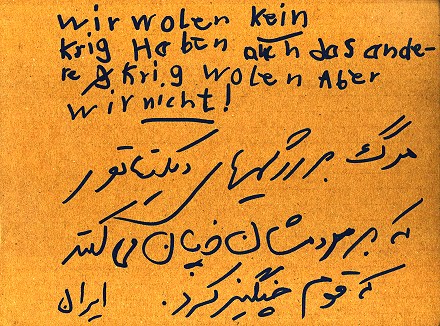 wir wolen kein
Krig Haben auch das ande-
re Krig wolen Aber
wir nicht!
مرگ بر رژیمهای دیکتاتور
که بر مردمشان چنان می کنند
که قوم چنگیز کرد. ایران